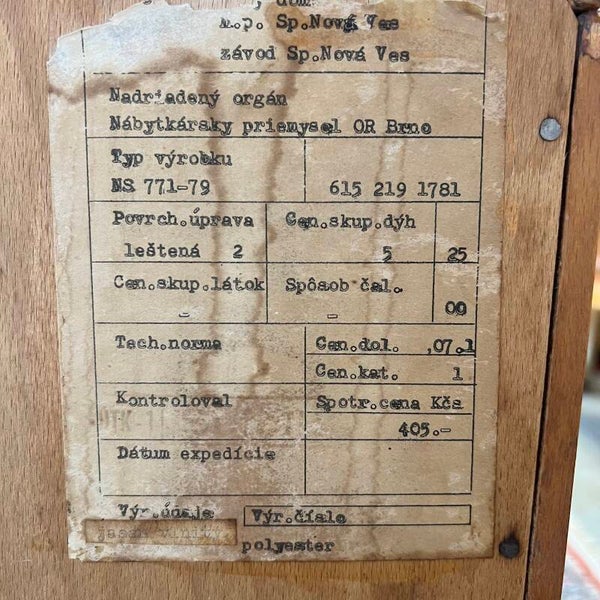 , dom
n.p. Sp.Nová Ves
závod Sp.Nová Ves
Nadriadený orgán
Nábytkársky priemysel OR Brno
Typ výrobku
NS 771-79 615 219 1781
Povrch.úprava Cen.skup.dýh
leštená 2 5 25
Cen.skup.látok Spôsob čal.
- - 00
Tech.norma Cen.dol. ,07.1
Cen.kat. 1
Kontroloval Spotr.cena Kčs
405.-
Dátum expedície
Výr.údaje Výr.číslo
polyester